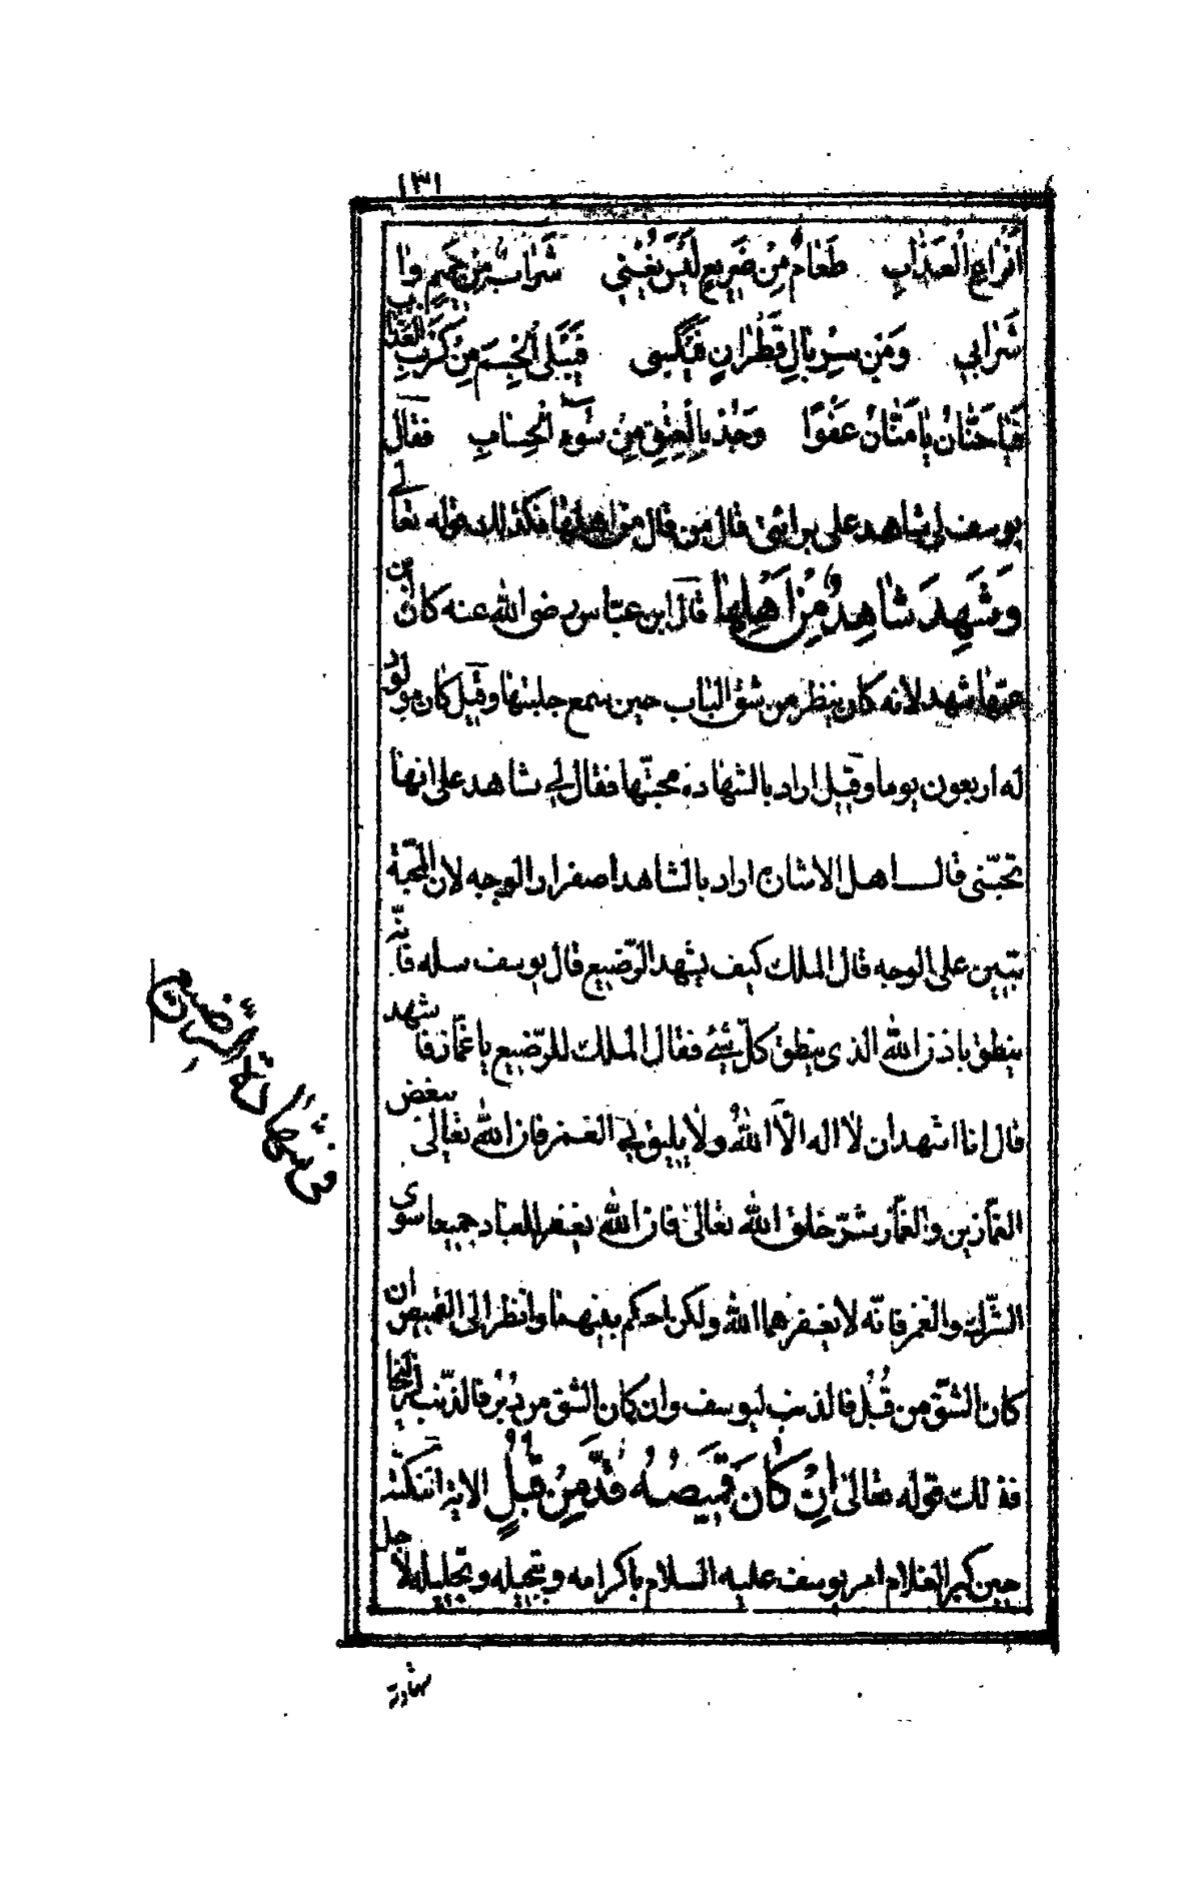 ١٣١
اَنْوَاعِ الْعَذَابِ طَعَامٌ مِنْ ضَرِيعٍ لَيْسَ يُغْنِي شَرَابٌ مِنْ حَمِيمٍ وَا
شَرَابِي وَمِنْ سِرْبَالِ قَطْرَانٍ فَيُكْسى فَيَبْلَى الْجِسْمَ مِنْ كَرْبِ العَذَابِ
فَيَا حَنَّانُ يَا مَنَّانُ عَفْوًا وَجُدْ بِالْعِتْقِ مِنْ سُوءِ الْحِسَابِ فقال
يوسف لي شاهد على براءتي قال من قال من اهلها فكذلك قوله تعالى
وَشَهِدَ شَاهِدٌ مِنْ اَهْلِهَا قال ابن عباس رضى الله عنه كان ابن
عمّها شهد لانه كان ينظر من شق الباب حين سمع جلبتها وقيل كان مولود
له اربعون يوما وقيل اراد بالشهادة محبتها فقال لي شاهد على انها
تحبّنى قال اهل الاشان اراد بالشاهد اصفرار الوجه لان المحبّة
تتبين على الوجه قال الملك كيف يشهد الرّضيع قال يوسف سله فانّه
ينطق باذن الله الذى ينطق كلّ شئ فقال الملك للرّضيع يا غمّاز فاشهد
قال انا اشهد ان لا اله الّا اللهُ ولا يليق بي الغمز فان الله تعالى يبغض
الغمّازين والغمّاز بشرّ خلق الله تعالى فان الله يغفر للعباد جميعا سوى
الشّرك والغمز فانّه لا يغفرهما الله ولكن احكم بينهما وانظر الى القميص ان
كان الشّق من قُبُل فالذنب ليوسف وان كان الشق من دُبُرٍ فالذّنب لزليخا
فذلك قوله تعالى اِنْ كَانَ قَمِيصُهُ قُدَّ مِنْ قُبُلٍ الاية
حين كبر الغلام امر يوسف عليه السلام باكرامه وتبجيله وتجليله لاجل
شهادته
فى شهادة الرّضيع